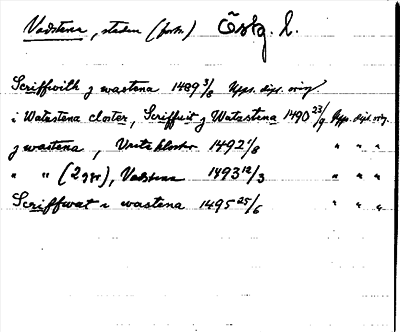 Vadstena, staden (forts.) Östg. l.
Scriffwith j wastena 1489 3/8 Upps. dipl. orig.
i Watzstena closter, Scriffuit j Watzstina 1490 23/9 Upps. dipl. orig.
j wastena, closter 1492 1/8 " " "
" " (2 ggr), Vadstena 1493 12/3 " " "
Scriffwat i wastena 1495 25/6 " " "